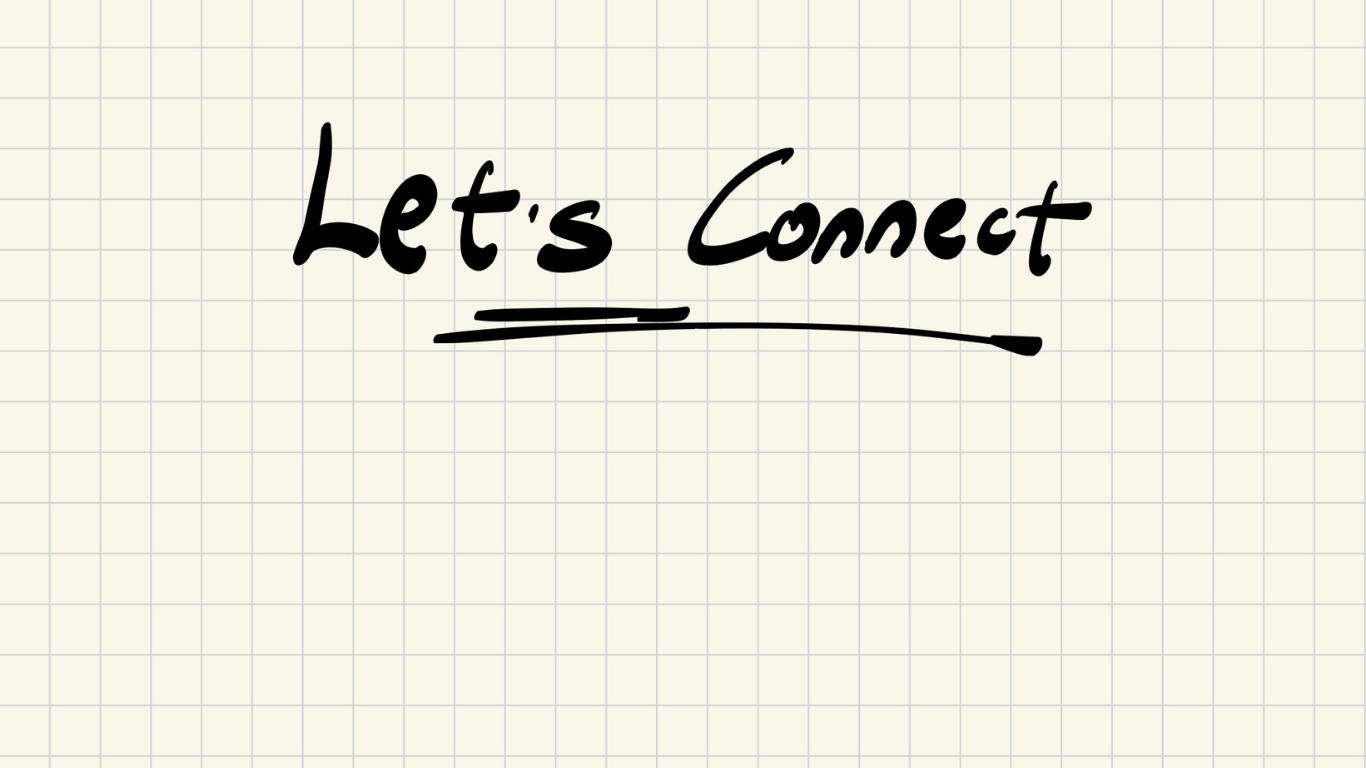 Let's Connect